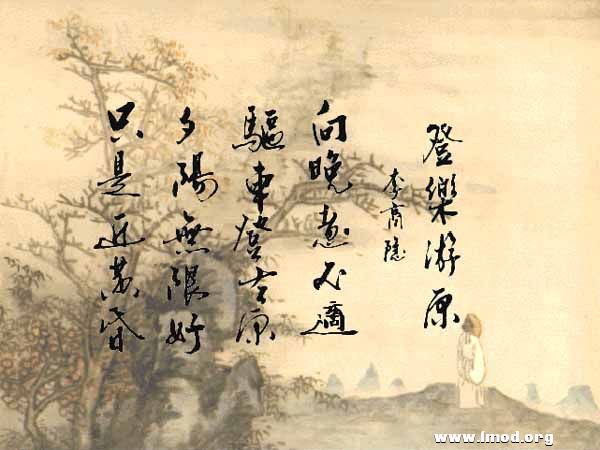 登樂游原
李商隱
向晚意不適
驅車登古原
夕陽無限好
只是近黄昏
www.lmod.org